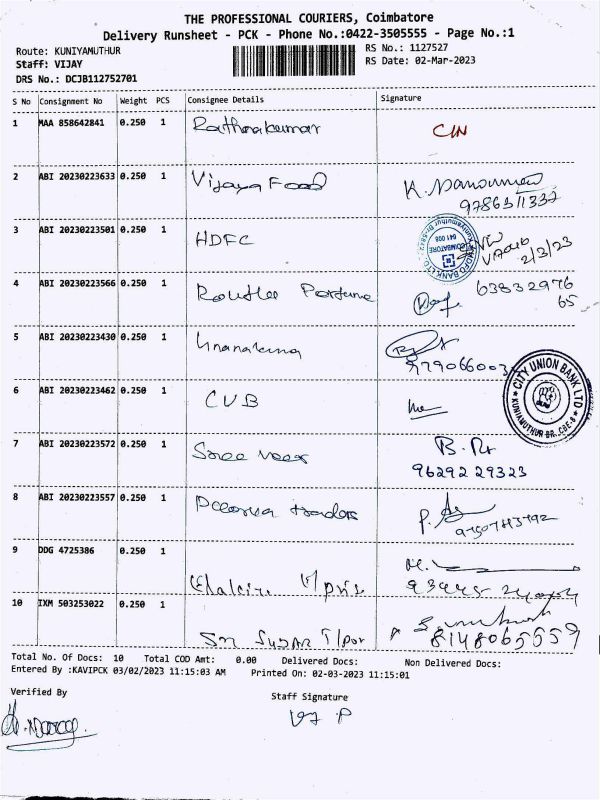 THE PROFESSIONAL COURIERS, Coimbatore
Delivery Runsheet - PCK - Phone No.:0422-3505555 - Page No.:1
Route: KUNIYAMUTHUR RS No.: 1127527
Staff: VIJAY RS Date: 02-Mar-2023
DRS No.: DCJB112752701
S No Consignment No Weight PCS Consignee Details Signature
1 MAA 858642841 0.250 1 Rathnakumar
2 ABI 20230223633 0.250 1 Vijaya Food
9786311337
3 ABI 20230223501 0.250 1 HDFC
2/3/23
4 ABI 20230223566 0.250 1 63832976
65
5 ABI 20230223430 0.250 1
6 ABI 20230223462 0.250 1 CUB
CITY UNION BANK LTD
KUNIAMUTHUR BR., CBE-8
7 ABI 20230223572 0.250 1 Sree
96292 29323
8 ABI 20230223557 0.250 1 traders
9 DDG 4725386 0.250 1
10 IXM 503253022 0.250 1 Sri
8148065559
Total No. Of Docs: 10 Total COD Amt: 0.00 Delivered Docs: Non Delivered Docs:
Entered By :KAVIPCK 03/02/2023 11:15:03 AM Printed On: 02-03-2023 11:15:01
Verified By
Staff Signature